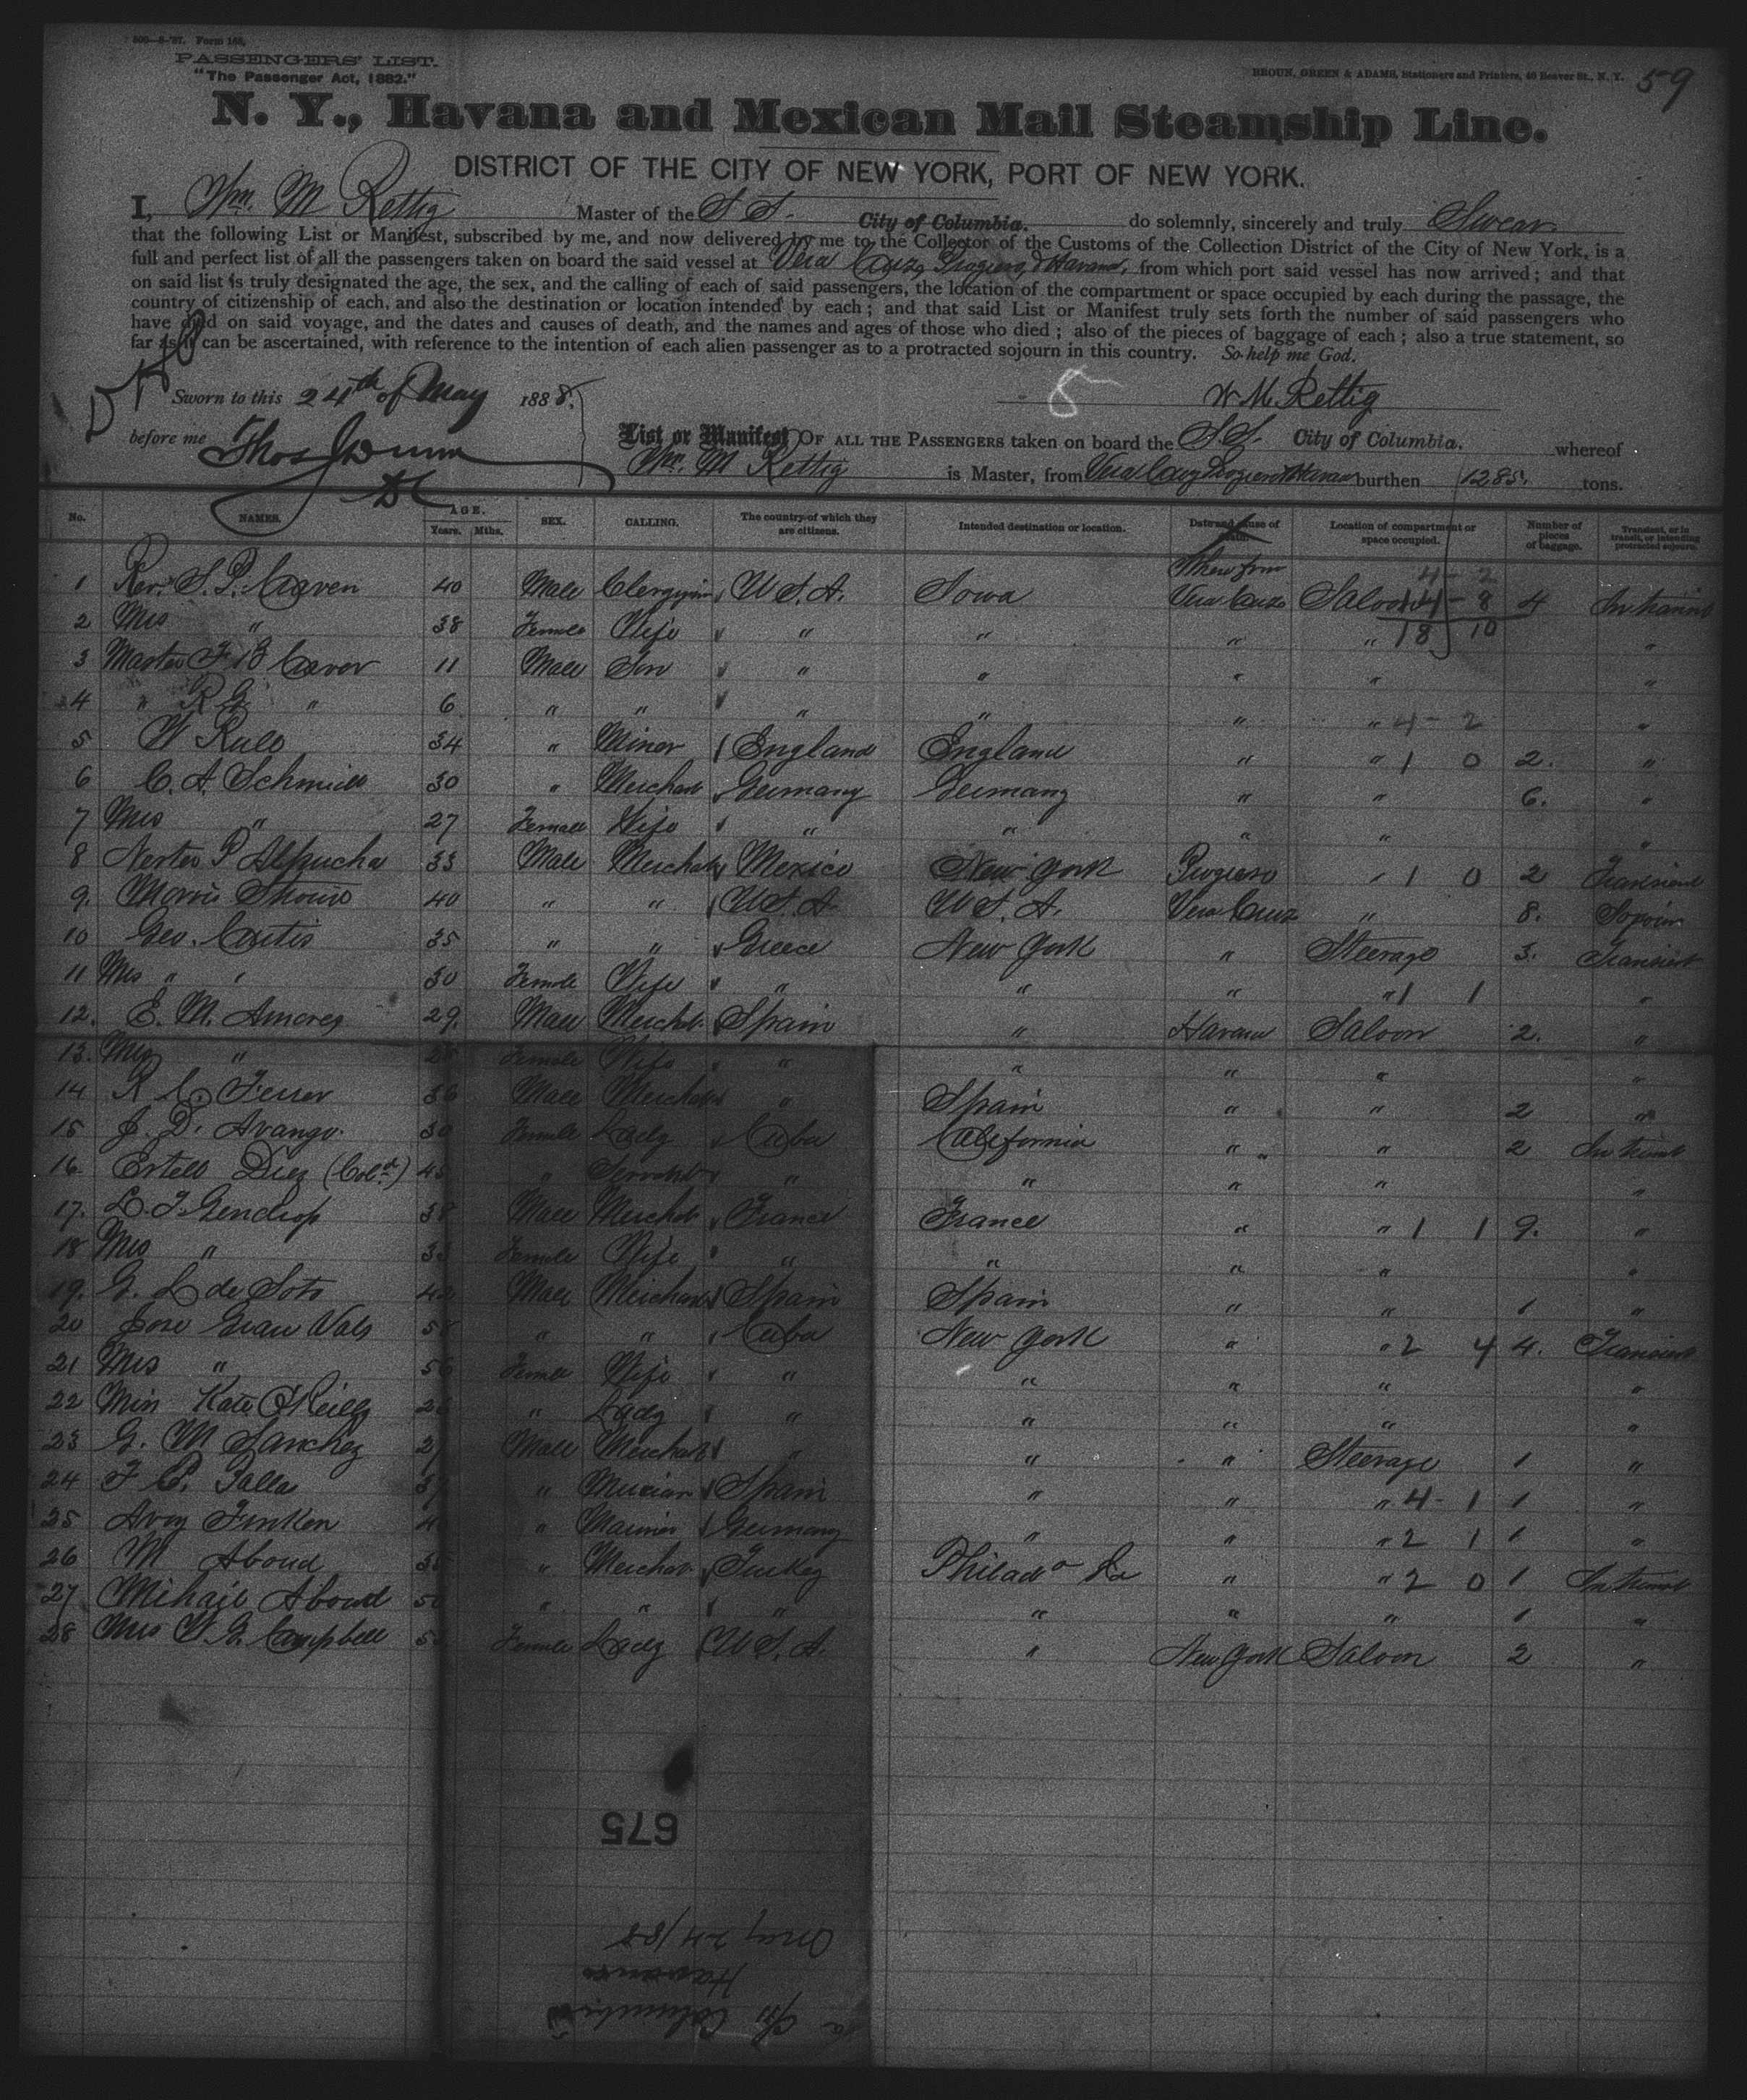 500—8-'87. Form 168.
PASSENGERS' LIST.
"The Passenger Act, 1882."
BROUN, GREEN & ADAMS, Stationers and Printers, 40 Beaver St., N. Y.
59
N. Y., Havana and Mexican Mail Steamship Line.
DISTRICT OF THE CITY OF NEW YORK, PORT OF NEW YORK.
I, Wm. M Rettig Master of the S S. City of Columbia. do solemnly, sincerely and truly Swear
that the following List or Manifest, subscribed by me, and now delivered by me to the Collector of the Customs of the Collection District of the City of New York, is a
full and perfect list of all the passengers taken on board the said vessel at Vera Cruz, Progreso, & Havana, from which port said vessel has now arrived; and that
on said list is truly designated the age, the sex, and the calling of each of said passengers, the location of the compartment or space occupied by each during the passage, the
country of citizenship of each, and also the destination or location intended by each; and that said List or Manifest truly sets forth the number of said passengers who
have died on said voyage, and the dates and causes of death, and the names and ages of those who died; also of the pieces of baggage of each; also a true statement, so
far as it can be ascertained, with reference to the intention of each alien passenger as to a protracted sojourn in this country. So help me God.
Sworn to this 24th of May 1888. 8 W M. Rettig
before me Thos J Dunn
List or Manifest OF ALL THE PASSENGERS taken on board the S.S. City of Columbia. whereof
Wm. M Rettig is Master, from Vera Cruz Progreso & Havana burthen 1285. tons.
No. NAMES. AGE. Years. Mths. SEX. CALLING. The country of which they are citizens. Intended destination or location. Date and cause of death. Location of compartment or space occupied. Number of pieces of baggage. Transient, or in transit, or intending protracted sojourn.
4 - 2
14 - 8
18 10
1 Rev. S. P. Craven 40 Male Clergyman U S. A. Iowa Vera Cruz Saloon 4 In transit
2 Mrs " 38 Female Wife " " " " "
3 Master F B Craver 11 Male Son " " " " "
4 " R G " 6 " " " " " " 4 - 2 "
5 W Rule 34 " Miner England England " " 1 0 2. "
6 C. A. Schmidt 30 " Merchant Germany Germany " " 6. "
7 Mrs " 27 Female Wife " " " " "
8 Nestor P Alpucha 33 Male Merchant Mexico New York Progreso " 1 0 2 Transient
9. Morris 40 " " U S. A. U S. A. Vera Cruz " 8.
10 Geo. 35 " " Greece New York " Steerage 3. Transient
11 Mrs " " 30 Female Wife " " " " 1 1 "
12. E. M. Amorey 29. Male Mercht. Spain " Havana Saloon 2. "
13. Mrs " 28 Female Wife " " " " "
14 R C. Ferrer 36 Male Merchant " Spain " " 2 "
15 J. D. Arango. 30 Female Lady Cuba California " " 2 In transit
16. Estell Diez (Cold) 45 " Servant " " " " "
17. L. J. Gendrop 38 Male Mercht. France France " " 1 1 9. "
18 Mrs " 33 Female Wife " " " " "
19. G. L de Soto 42 Male Merchant Spain Spain " " 1 "
20 Jose Grau Vals 58 " " Cuba New York " " 2 4 4. Transient
21 Mrs " 56 Female Wife " " " " "
22 Miss Kate O'Reilly " Lady " " " " "
23 G. M Sanchez Male Merchant " " " Steerage 1 "
24 F. C. Galla " Spain " " " 4 - 1 1 "
25 Finken " Mariner Germany " " " 2 1 1 "
26 M Aboud " Mercht. Turkey Philada Pa " " 2 0 1 In transit
27 Mihail Aboud " " " " " " 1 "
28 Mrs W. G. Campbell Female Lady U S. A. " New York Saloon 2 "
675
May 24/88
Havana
Columbia